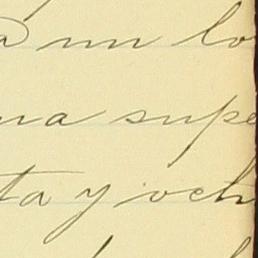 a un lo
na supe
ta y och